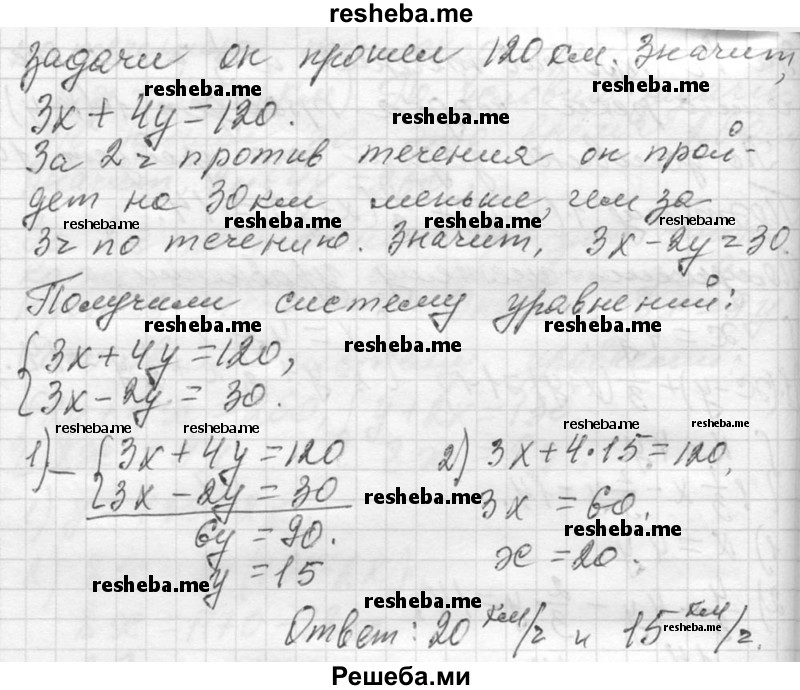 resheba.me
задачи он прошел 120 км. Значит,
resheba.me resheba.me
3x + 4y = 120. resheba.me
За 2 ч против течения он прой-
дет на 30 км меньше, чем за
resheba.me resheba.me resheba.me resheba.me
3ч по течению. Значит, 3x - 2y = 30.
Получили систему уравнений:
resheba.me resheba.me
{3x + 4y = 120, resheba.me
{3x - 2y = 30.
resheba.me resheba.me resheba.me resheba.me
1) - {3x + 4y = 120 2) 3x + 4·15 = 120,
{3x - 2y = 30 resheba.me 3x = 60.
6y = 90. resheba.me
y = 15 x = 20.
resheba.me resheba.me
Ответ: 20 км/ч и 15 км/ч.
resheba.me
Решеба.ми